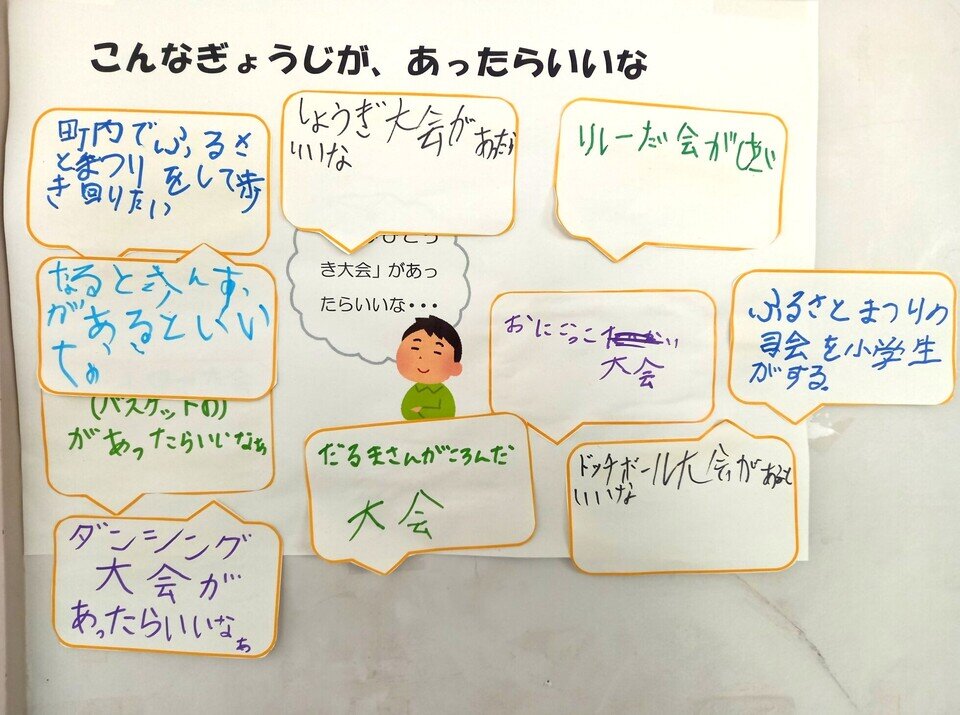 こんなぎょうじが、あったらいいな
町内でふるさ
とまつりをして歩
き回りたい
しょうぎ大会があったら
いいな
リレーだ会が
き大会」があっ
たらいいな・・・
なると
があるといい
な
おにごっこ
大会
ふるさとまつりの
司会を小学生
がする。
(バスケットの)
があったらいいなぁ
だるまさんがころんだ
大会
ドッチボール大会があると
いいな
ダンシング
大会が
あったらいいなぁ